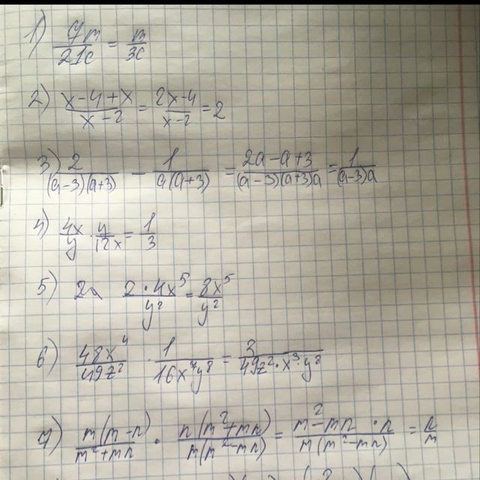 1) 7m/21c = m/3c
2) x-4+x/x-2 = 2x-4/x-2 = 2
3) 2/(a-3)(a+3) - 1/a(a+3) = 2a-a+3/(a-3)(a+3)a = 1/(a-3)a
4) 4x/y · y/12x = 1/3
5) 2 · 4x⁵/y² = 8x⁵/y²
6) 48x⁴/49z² · 1/16x⁷y⁸ = 3/49z²·x³·y⁸
7) m(m-n)/m²+mn · n(m²+mn)/m(m²-mn) = m²-mn·n/m(m²-mn) = n/m